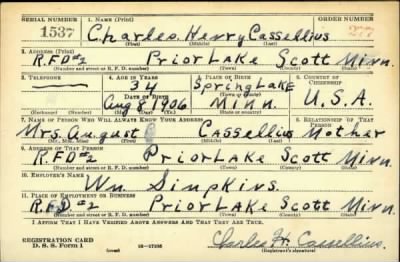 SERIAL NUMBER 1. NAME (Print) ORDER NUMBER
1537 Charles Henry Cassellius 277
(First) (Middle) (Last)
2. ADDRESS (Print)
R.F.D #2 Prior Lake Scott Minn.
(Number and street or R. F. D. number) (Town) (County) (State)
3. TELEPHONE 4. AGE IN YEARS 5. PLACE OF BIRTH 6. COUNTRY OF CITIZENSHIP
34 Spring Lake
DATE OF BIRTH
Aug 8 1906 Minn. U.S.A.
(Exchange) (Number) (Mo.) (Day) (Yr.) (State or country)
7. NAME OF PERSON WHO WILL ALWAYS KNOW YOUR ADDRESS 8. RELATIONSHIP OF THAT PERSON
Mrs. August Cassellius Mother
(Mr., Mrs., Miss) (First) (Middle) (Last)
9. ADDRESS OF THAT PERSON
R.F.D #2 Prior Lake Scott Minn.
(Number and street or R. F. D. number) (Town) (County) (State)
10. EMPLOYER'S NAME
Wm Simpkins.
11. PLACE OF EMPLOYMENT OR BUSINESS
R.F.D. #2 Prior Lake Scott Minn.
(Number and street or R. F. D. number) (Town) (County) (State)
I AFFIRM THAT I HAVE VERIFIED ABOVE ANSWERS AND THAT THEY ARE TRUE.
REGISTRATION CARD
D. S. S. Form 1 (over) 16-17105 Charles H. Cassellius.
(Registrant's signature)